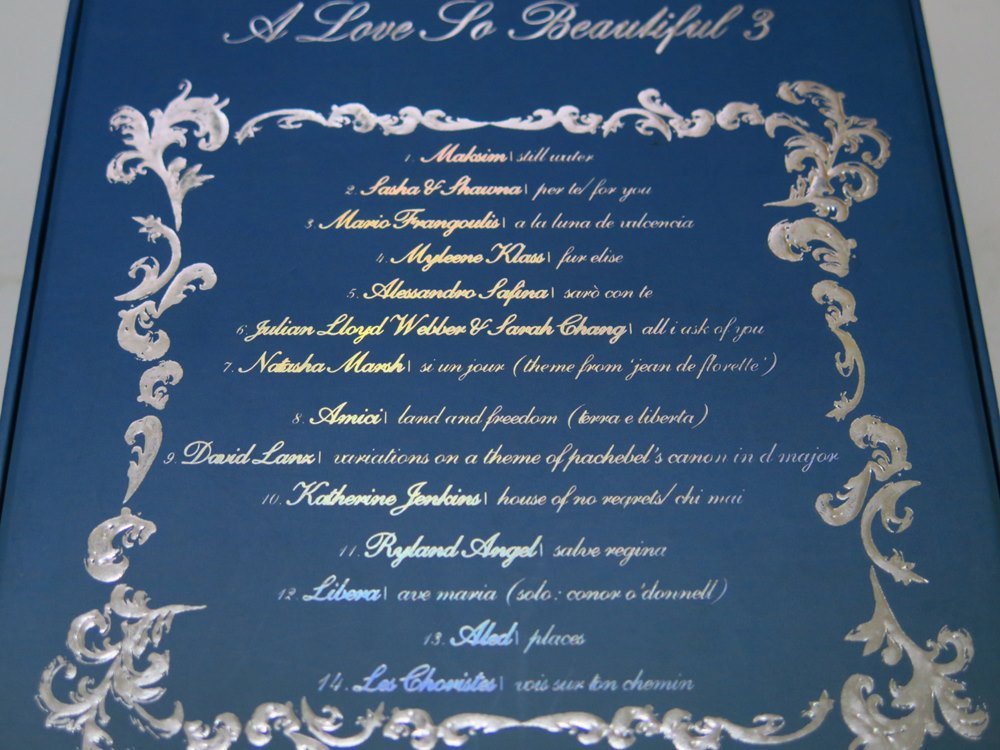 A Love So Beautiful 3
1. Maksim | still water
2. Sasha & Shawna | per te/ for you
3. Mario Frangoulis | a la luna de valcencia
4. Myleene Klass | fur elise
5. Alessandro Safina | sarò con te
6. Julian Lloyd Webber & Sarah Chang | all i ask of you
7. Natasha Marsh | si un jour (theme from 'jean de florette')
8. Amici | land and freedom (terra e liberta)
9. David Lanz | variations on a theme of pachebel's canon in d major
10. Katherine Jenkins | house of no regrets/ chi mai
11. Ryland Angel | salve regina
12. Libera | ave maria (solo: conor o'donnell)
13. Aled | places
14. Les Choristes | vois sur ton chemin